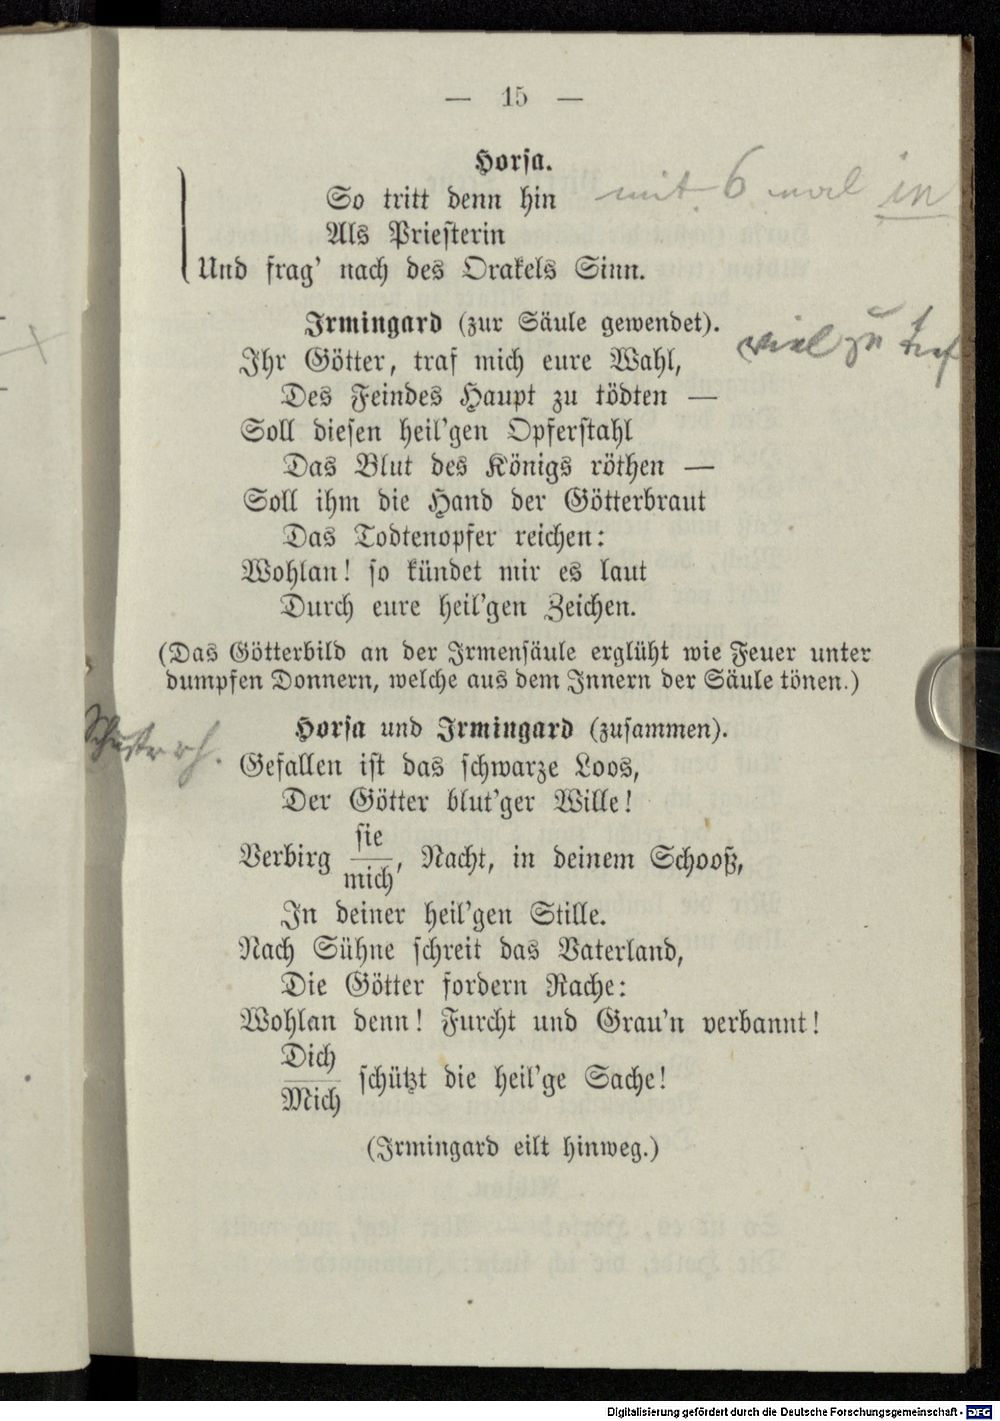 — 15 —
Horsa.
So tritt denn hin mit 6 mal in
Als Priesterin
Und frag' nach des Orakels Sinn.
Irmingard (zur Säule gewendet).
viel zu tief
Ihr Götter, traf mich eure Wahl,
Des Feindes Haupt zu tödten —
Soll diesen heil'gen Opferstahl
Das Blut des Königs röthen —
Soll ihm die Hand der Götterbraut
Das Todtenopfer reichen:
Wohlan! so kündet mir es laut
Durch eure heil'gen Zeichen.
(Das Götterbild an der Irmensäule erglüht wie Feuer unter
dumpfen Donnern, welche aus dem Innern der Säule tönen.)
Horsa und Irmingard (zusammen).
Gefallen ist das schwarze Loos,
Der Götter blut'ger Wille!
Verbirg sie/mich, Nacht, in deinem Schooß,
In deiner heil'gen Stille.
Nach Sühne schreit das Vaterland,
Die Götter fordern Rache:
Wohlan denn! Furcht und Grau'n verbannt!
Dich/Mich schützt die heil'ge Sache!
(Irmingard eilt hinweg.)
Digitalisierung gefördert durch die Deutsche Forschungsgemeinschaft - DFG